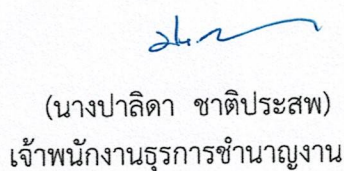 (นางปาลิดา ชาติประสพ)
เจ้าพนักงานธุรการชำนาญงาน